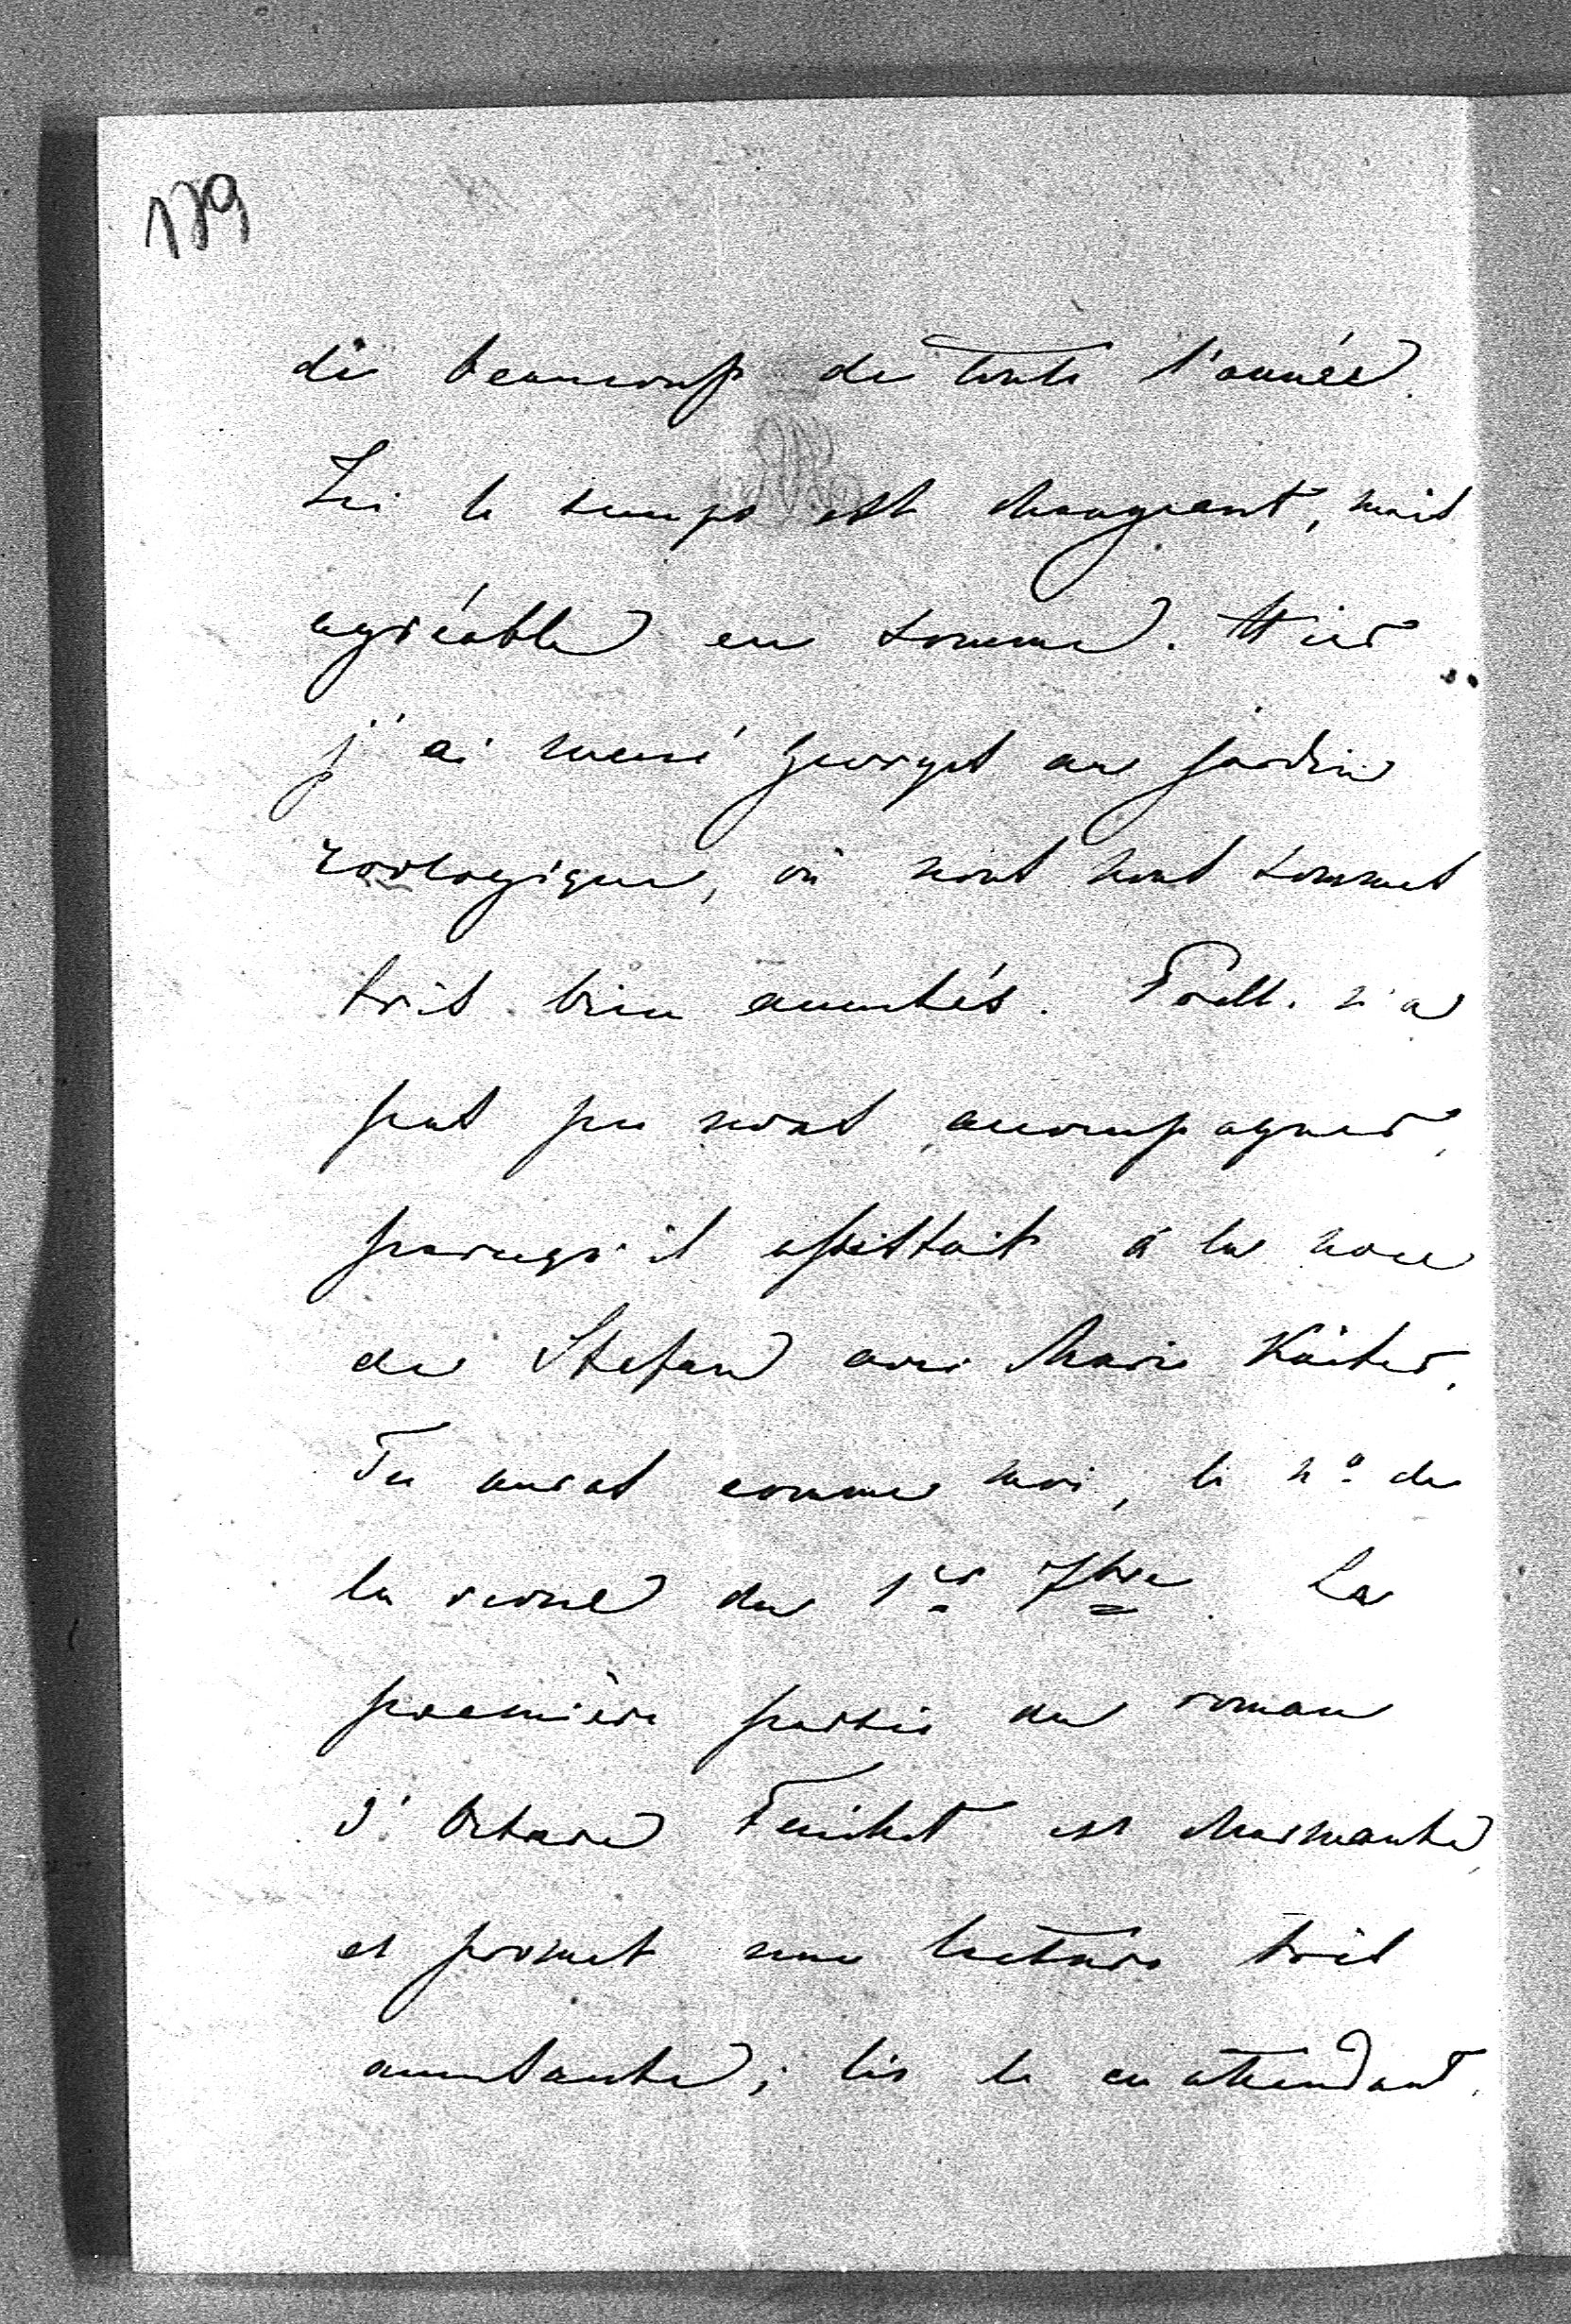 179
de beaucoup de toute l'année.
Ici le temps est changeant, mais
agréable en somme. Hier
j'ai mené Georges au jardin
zoologique, où nous nous sommes
très bien amusés. Tvell. n'a
pas pu nous accompagner,
parcequ'il assistait à la noce
de Stefan avec Marie
Tu auras comme moi, le nº de
la revue du 1er 7bre. La
première partie du roman
d'Octave Feuillet est charmante,
et promet une lecture très
amusante; lis le en attendant.